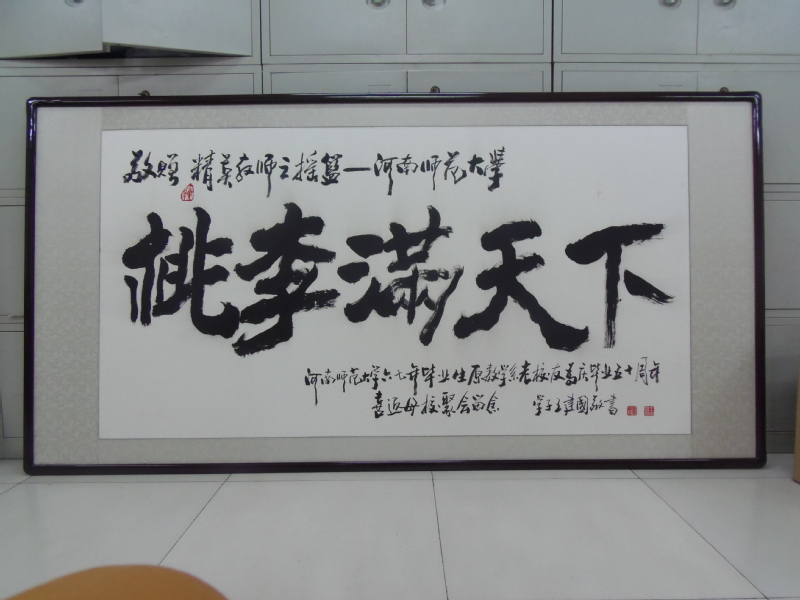 敬赠 精英教师之摇篮—河南师范大學
桃李满天下
河南师范大学六七年毕业生原数学系老校友为庆毕业五十周年
喜返母校聚会留念 学子王建國敬書